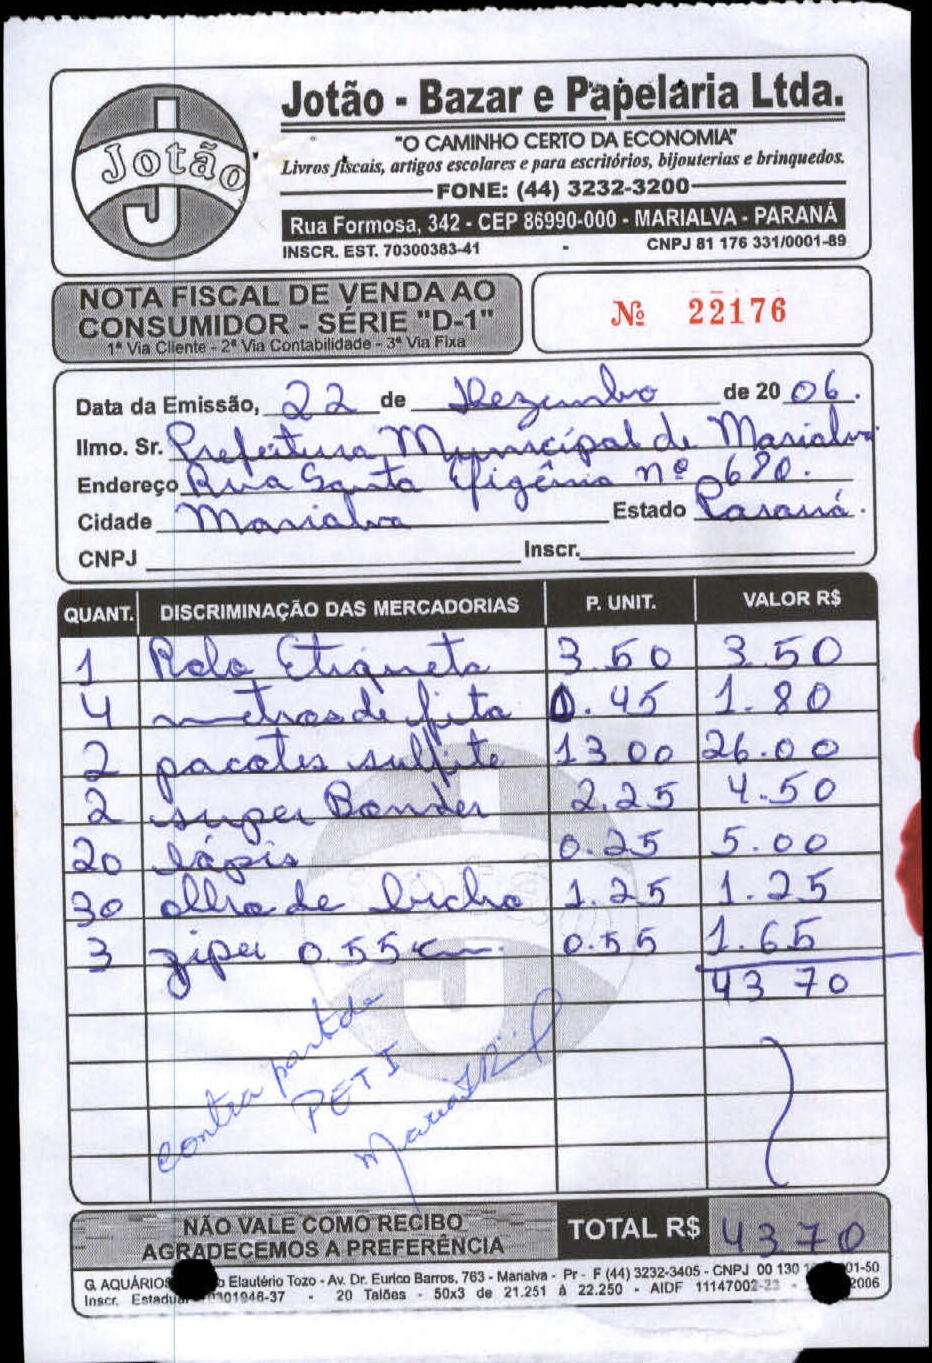 Jotão
Jotão - Bazar e Papelaria Ltda.
"O CAMINHO CERTO DA ECONOMIA"
Livros fiscais, artigos escolares e para escritórios, bijouterias e brinquedos.
FONE: (44) 3232-3200
Rua Formosa, 342 - CEP 86990-000 - MARIALVA - PARANÁ
INSCR. EST. 70300383-41 - CNPJ 81 176 331/0001-89
NOTA FISCAL DE VENDA AO
CONSUMIDOR - SÉRIE "D-1"
1ª Via Cliente - 2ª Via Contabilidade - 3ª Via Fixa
Nº 22176
Data da Emissão, 22 de Dezembro de 20 06.
Ilmo. Sr. Prefeitura Municipal de Marialva
Endereço Rua Santa Efigênia nº 680.
Cidade Marialva Estado Paraná.
CNPJ Inscr.
QUANT. DISCRIMINAÇÃO DAS MERCADORIAS P. UNIT. VALOR R$
1 Rolo Etiqueta 3.50 3.50
4 metros de fita 0.45 1.80
2 pacotes sulfite 13.00 26.00
2 super Bonder 2.25 4.50
20 lápis 0.25 5.00
30 olho de bicho 1.25 1.25
3 ziper 0.55 cm 0.55 1.65
43 70
contra partida
PETI
NÃO VALE COMO RECIBO
AGRADECEMOS A PREFERÊNCIA
TOTAL R$ 43 70
G. AQUÁRIOS Elautério Tozo - Av. Dr. Eurico Barros, 763 - Marialva - Pr - F (44) 3232-3405 - CNPJ 00 130 01-50
Inscr. Estadual 0301946-37 - 20 Talões - 50x3 de 21.251 á 22.250 - AIDF 11147002-23 - 2006